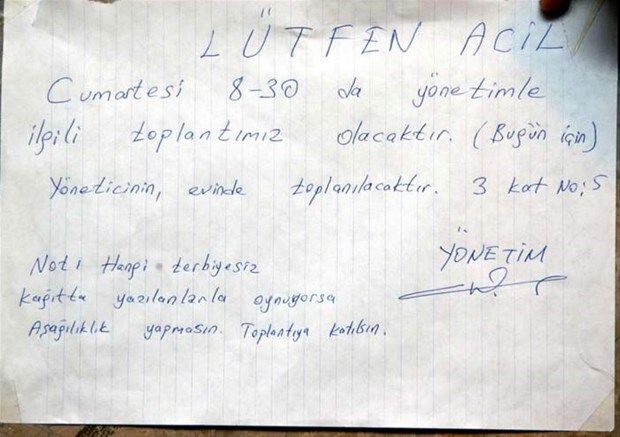 LÜTFEN ACİL
Cumartesi 8-30 da yönetimle
ilgili toplantımız olacaktır. (Bugün için)
Yöneticinin, evinde toplanılacaktır. 3 kat No:5
YÖNETİM
Not: Hangi terbiyesiz
kağıtta yazılanlarla oynuyorsa
Aşağılıklık yapmasın. Toplantıya katılsın.